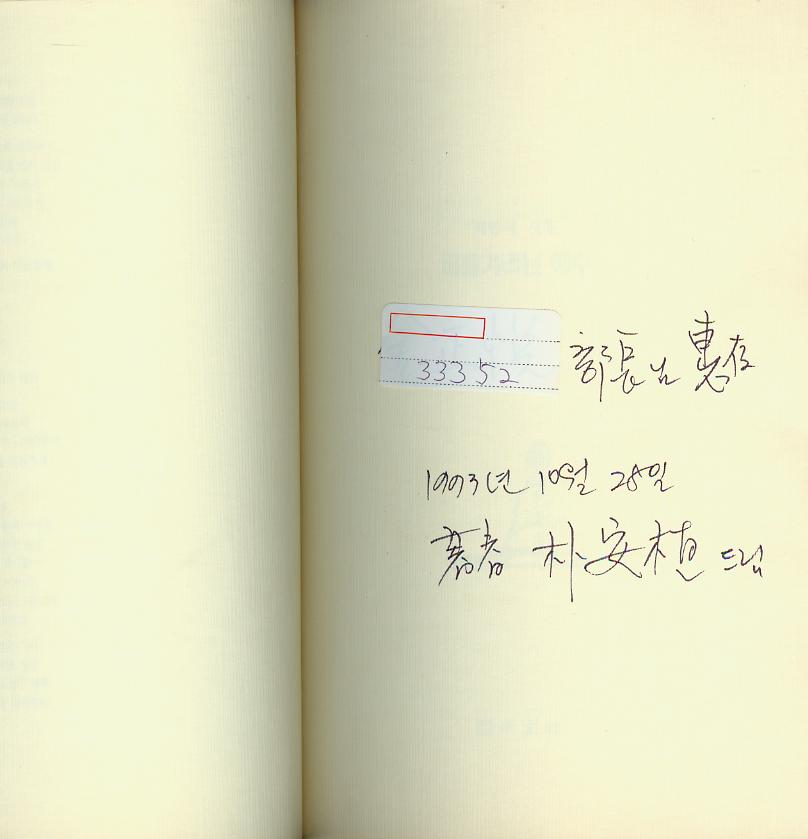 33352
部長님 惠存
1993년 10월 28일
著者 朴安植 드림